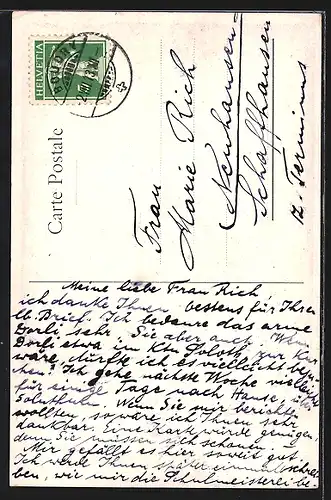 HELVETIA
Carte Postale
Frau
Marie Rich
Neuhausen
Schaffhausen
z. Terminus
Meine liebe Frau Rich
ich danke Ihnen bestens für Ihren
lb. Brief. Ich bedaure das arme
Dorli sehr, Sie aber auch. Wenn
Dorli etwa im Ktn Soloth. zur Kur
wäre, dürfte ich es vielleicht besu-
chen? Ich gehe nächste Woche vielleicht
für einige Tage nach Hause,
Solothurn. Wenn Sie mir berichten
wollten, so wäre ich Ihnen sehr
dankbar. Eine Karte würde genügen,
denn Sie müssen sich schonen.
Mir gefällt es hier soweit gut.
Ich werde Ihnen später einmal schrei-
ben, wie mir die Schulmeisterei be-